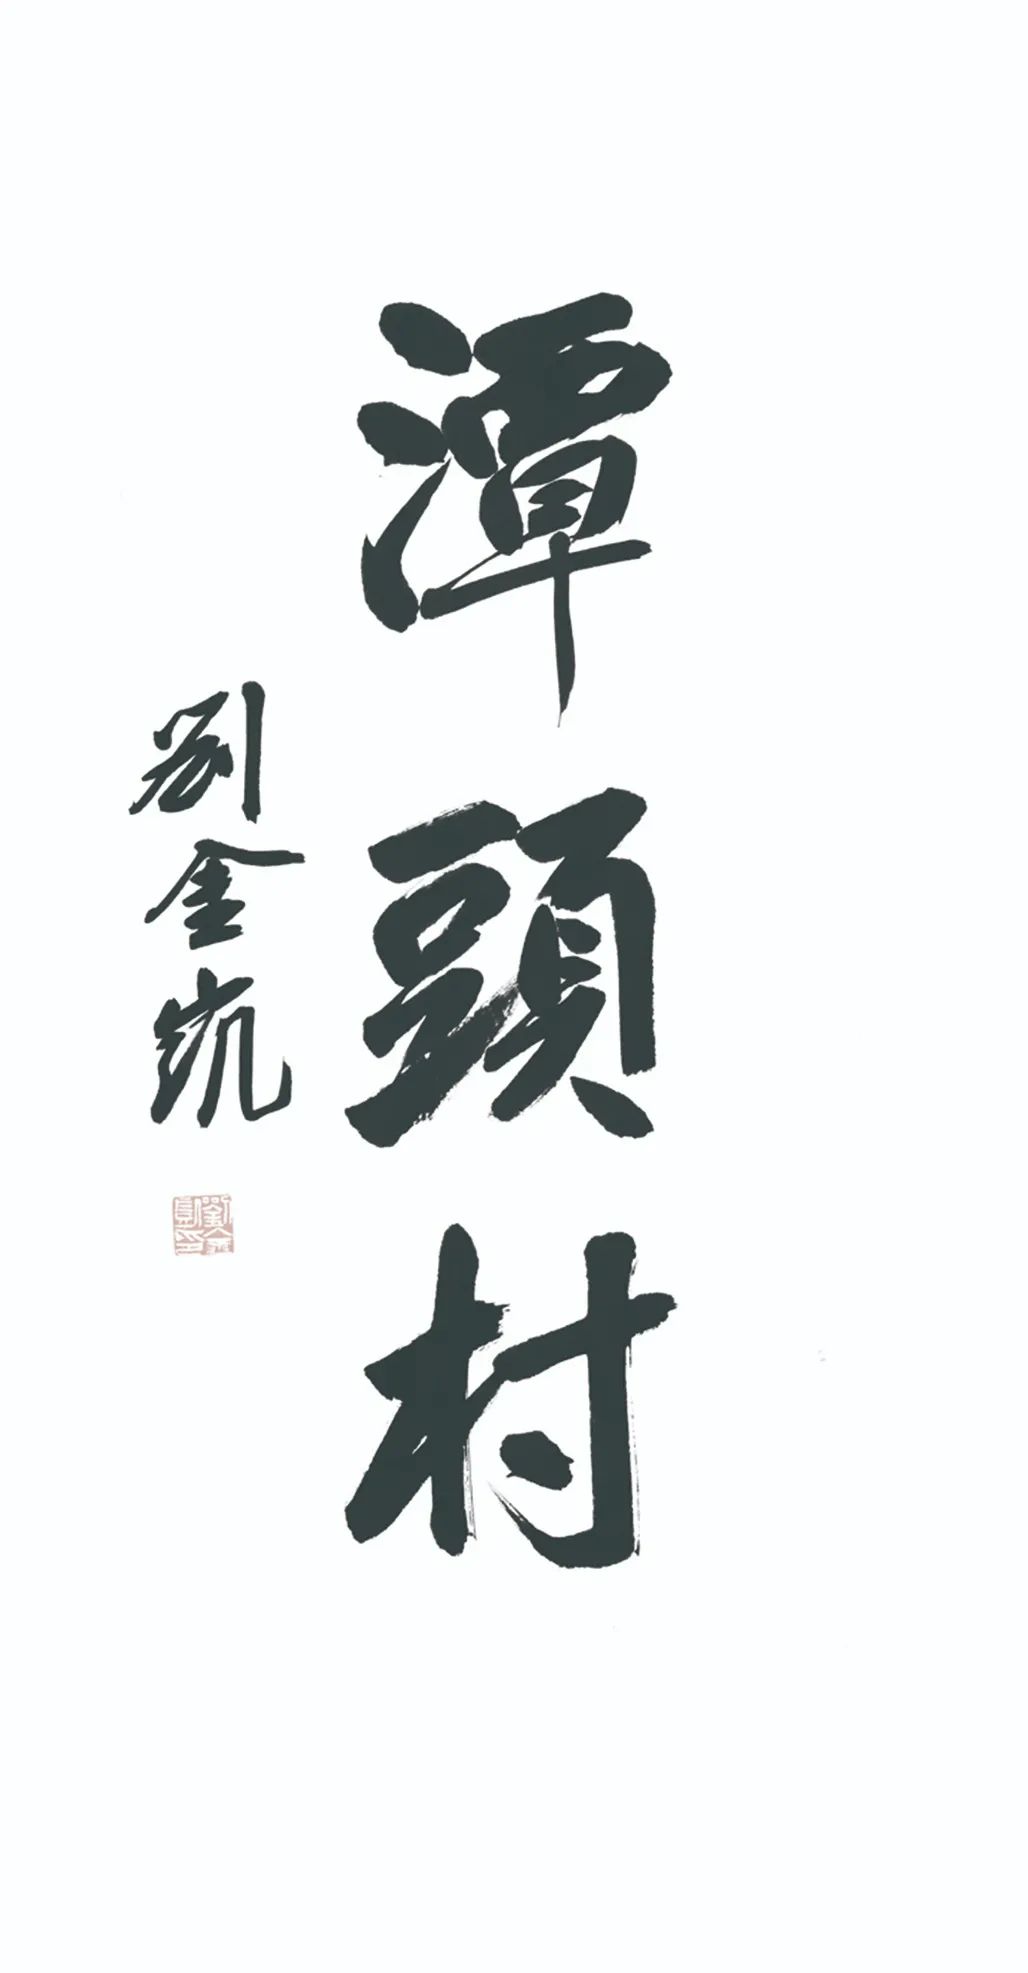 潭頭村
刘金凯